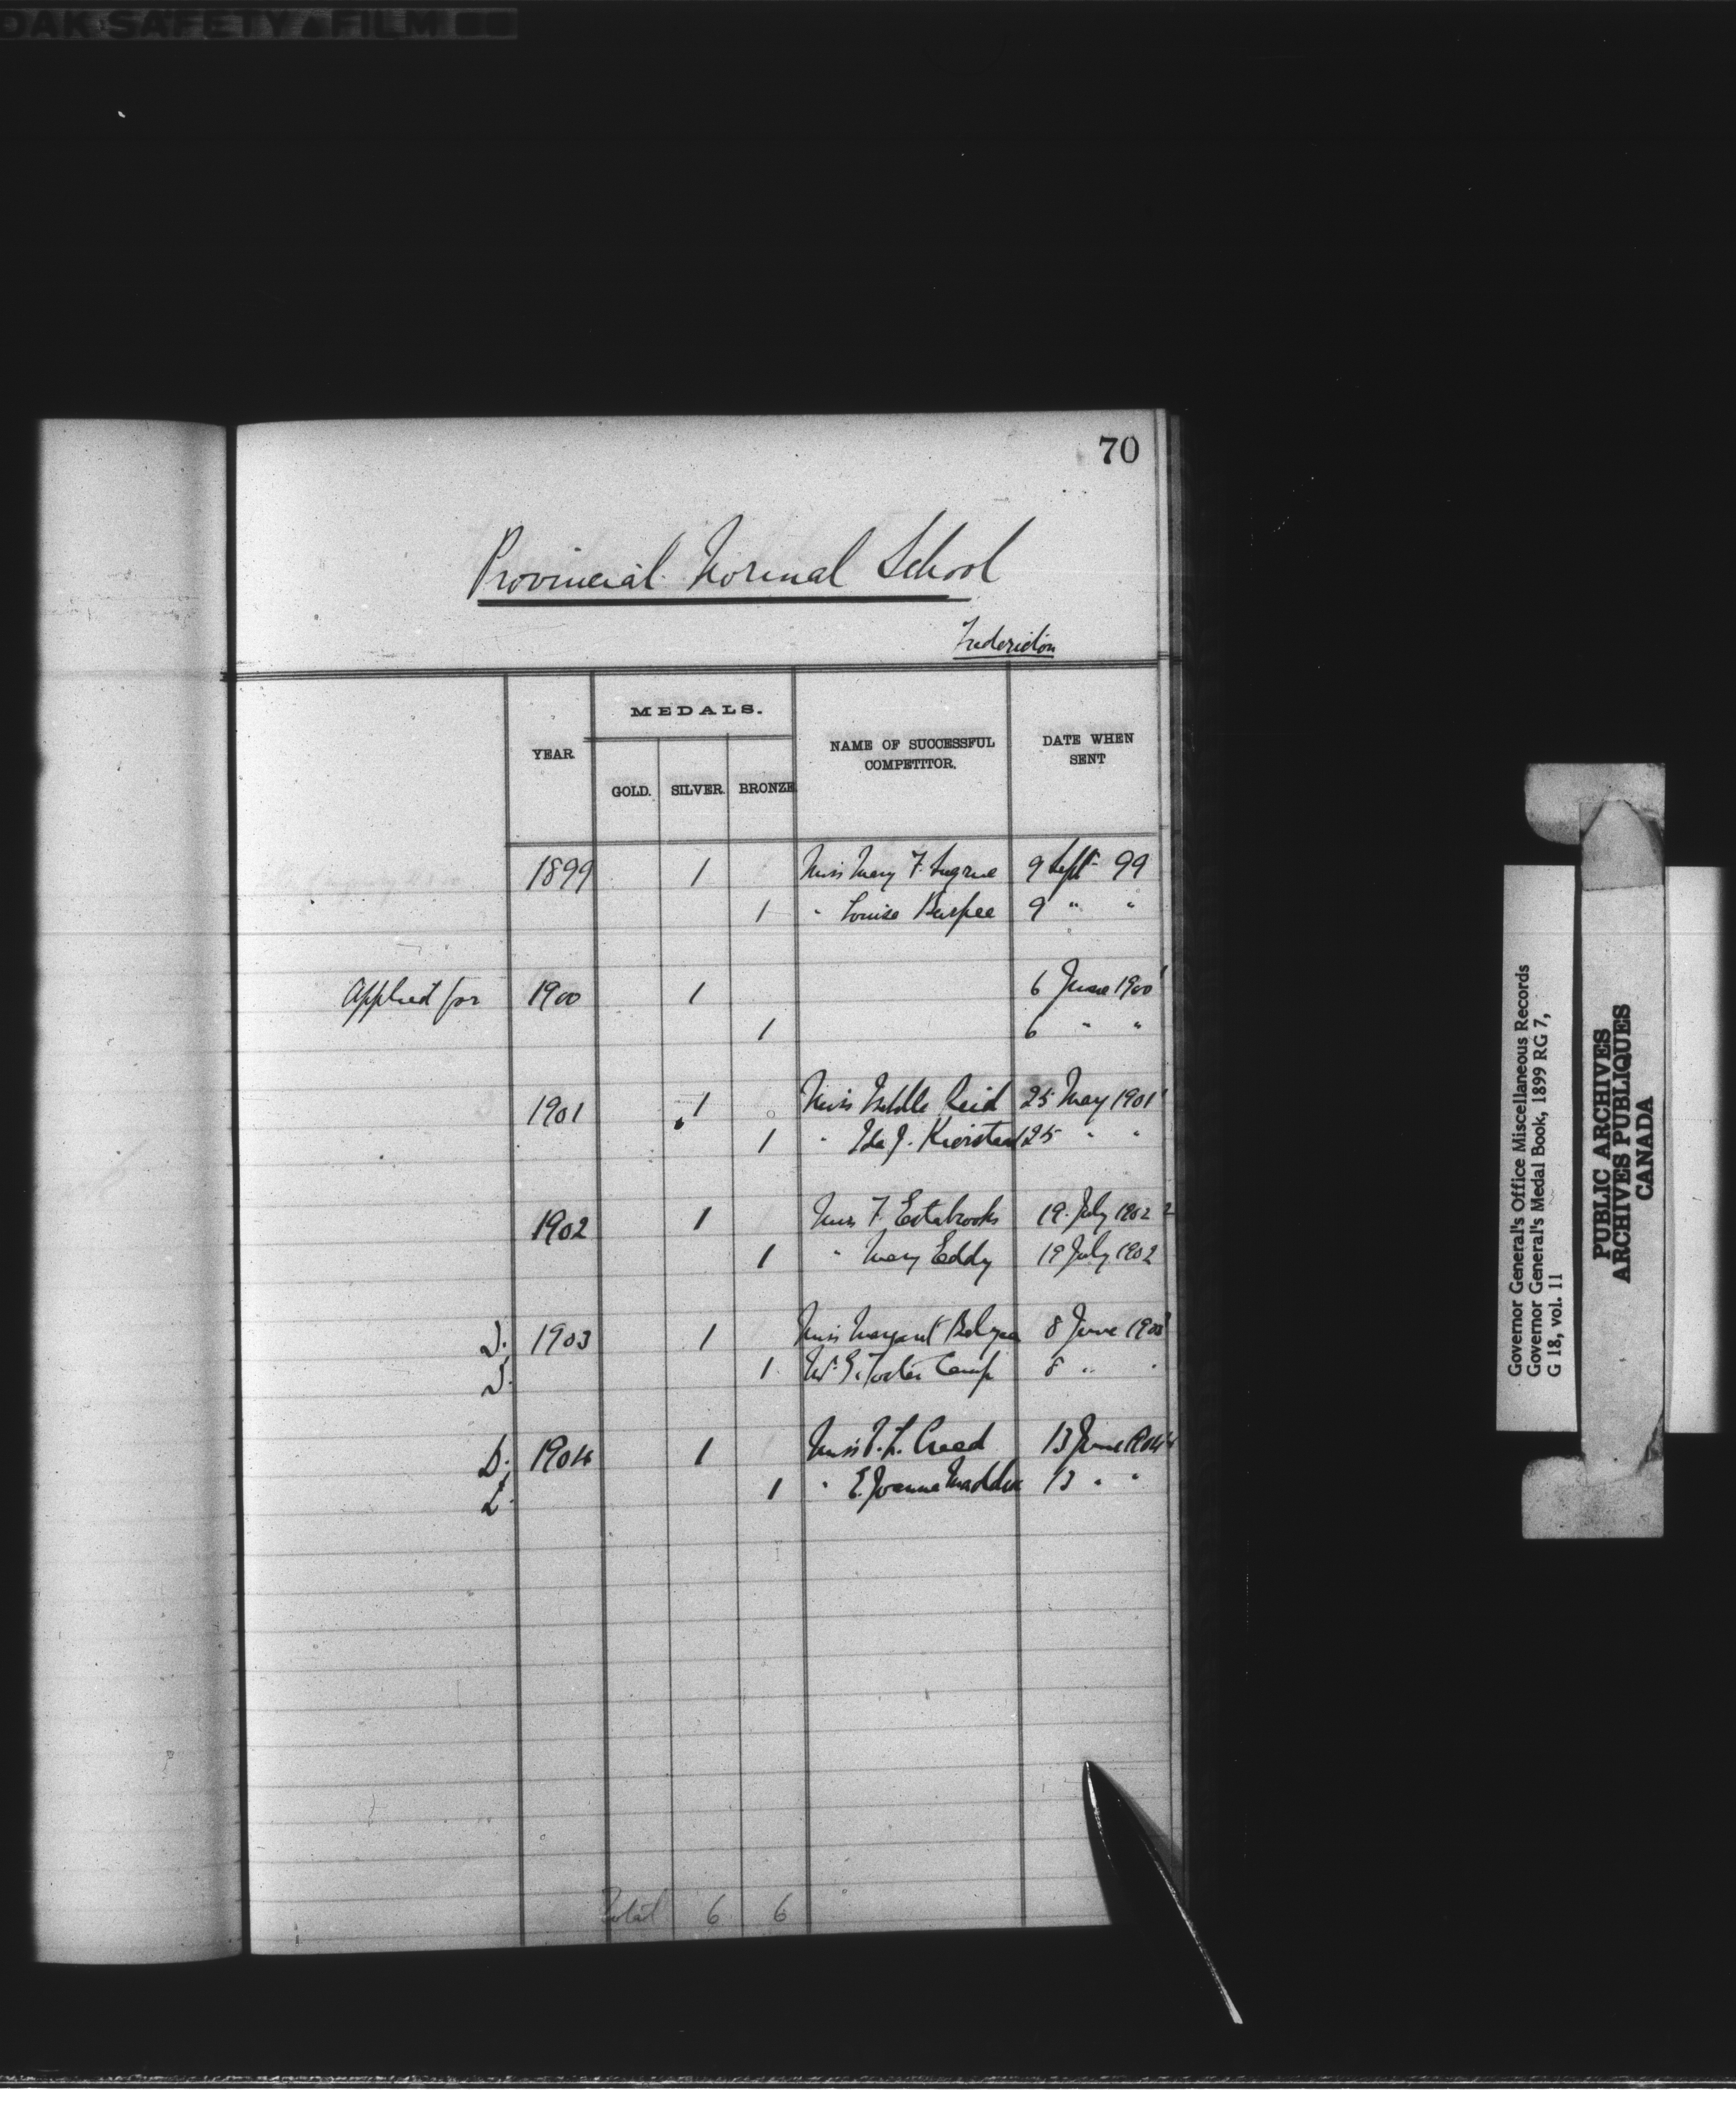 DAK SAFETY FILM
70
Provincial Normal School
Fredericton
YEAR
MEDALS.
GOLD. SILVER. BRONZE
NAME OF SUCCESSFUL COMPETITOR.
DATE WHEN SENT
1899 1 Miss Mary F. Sugrue 9 Sept 99
1 " Louise Burpee 9 " "
Applied for 1900 1 6 June 1900
1 6 " "
1901 1 Miss Reid 25 May 1901
1 " Ida J. Kierstead 25 " "
1902 1 Miss F. Estabrooks 19 July 1902
1 " Mary Eddy 19 July 1902
D. 1903 1 Miss Margaret Belyea 8 June 1903
D. 1 Mr. G. Foster Camp 8 " "
D. 1904 1 Miss Creed 13 June 1904
1 " E. Joanna Maddox 13 " "
Total 6 6
Governor General's Office Miscellaneous Records
Governor General's Medal Book, 1899 RG 7,
G 18, vol. 11
PUBLIC ARCHIVES
ARCHIVES PUBLIQUES
CANADA